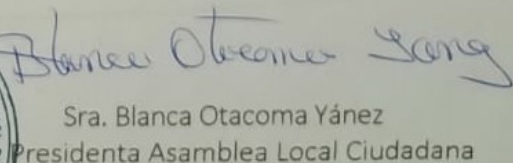 Blanca Otacoma Yang
Sra. Blanca Otacoma Yánez
Presidenta Asamblea Local Ciudadana